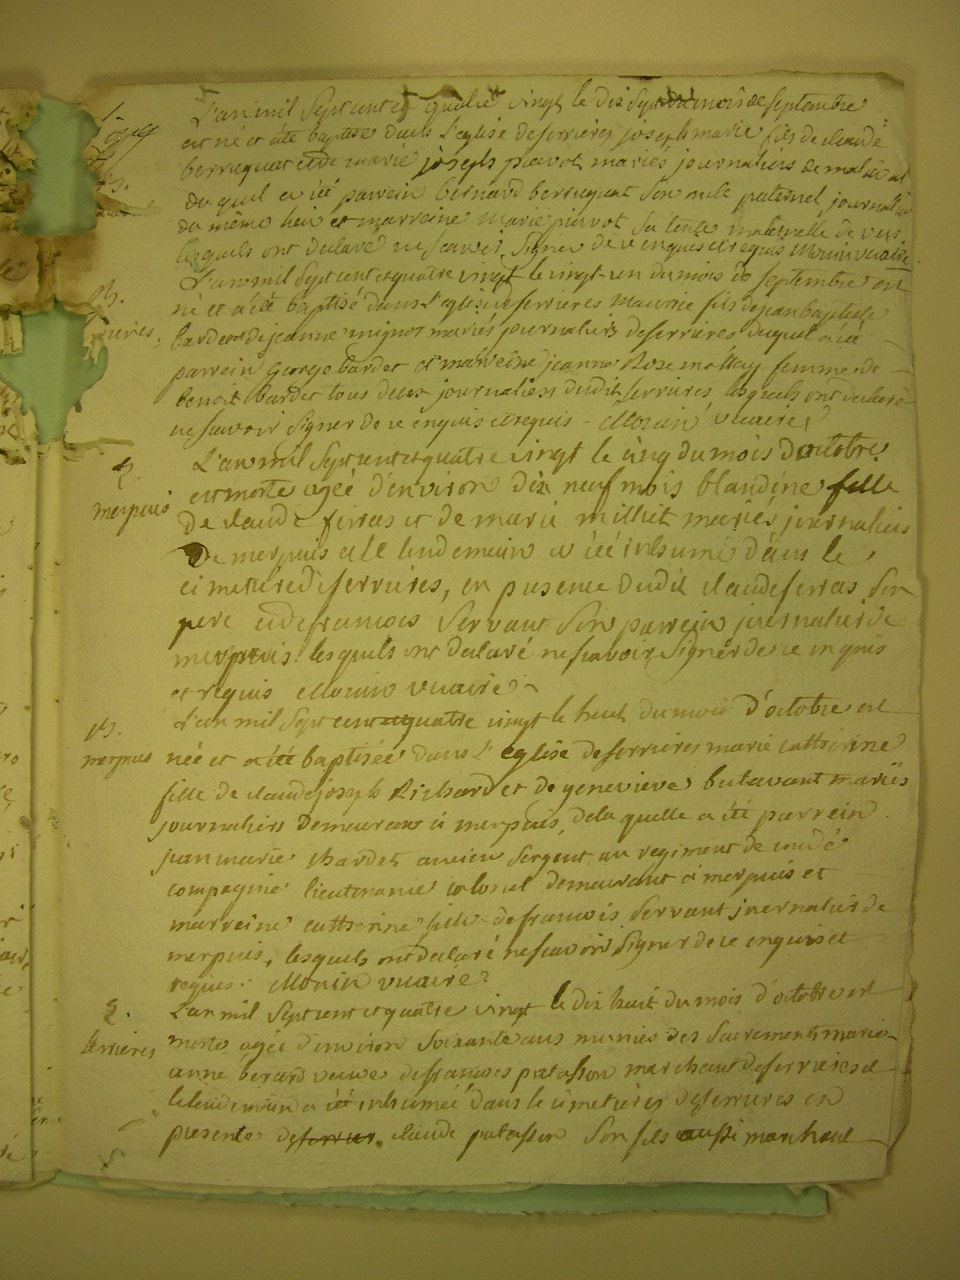 L'an mil sept cent et quatre vingt le dix sept du mois de septembre
est né et été baptisé dans l'eglise de serrieres joseph marie fils de claude
berruquat et de marie joseph puvot mariés journaliers de
du quel a été parrein bernard berruquat son oncle paternel journalier
du même lieu et marreine marie puvot sa tente maternelle de
lesquels ont declaré ne scavoir signer de ce enquis et requis Morin vicaire
L'an mil sept cent et quatre vingt le vingt un du mois de septembre est
né et a été baptisé dans l'eglise de serrieres maurice fils de jean baptiste
bardet et de jeanne mignot mariés journaliers de serrieres duquel a été
parrein george bardet et marreine jeanne Rose mollay femme de
benoit bardet tous deux journaliers dudit serrieres lesquels ont declaré
ne scavoir signer de ce enquis et requis - Morin vicaire
L'an mil sept cent et quatre vingt le cinq du mois d'octobre
merpuis est morte agée d'environ dix neuf mois blandine fille
de claude ferras et de marie milliet mariés journaliers
de merpuis et le lendemain a été inhumé dans le
cimetiere de serrieres, en presence dudit claude ferras son
pere et de francois servant son parrein journalier de
merpuis lesquels ont declaré ne scavoir signer de ce enquis
et requis Morin vicaire
L'an mil sept cent et quatre vingt le huit du mois d'octobre est
merpuis née et a été baptisée dans l'eglise de serrieres marie catherine
fille de claude joseph Richard et de genevieve butavant mariés
journaliers demeurans à merpuis, de la quelle a été parrein
jean marie chardet ancien sergent au regiment de condé
compagnie lieutenance colonel demeurant à merpuis et
marreine catherine fille de francois servant journalier de
merpuis, lesquels ont declaré ne scavoir signer de ce enquis et
requis. Morin vicaire
L'an mil sept cent et quatre vingt le dix huit du mois d'octobre est
serrieres morte agée d'environ soixante ans munies des sacrements marie
anne berard veuve de francois patasson marchant de serrieres et
le lendemain a été inhumée dans le cimetieres de serrieres en
presence de serrier claude patasson son fils aussi marchant